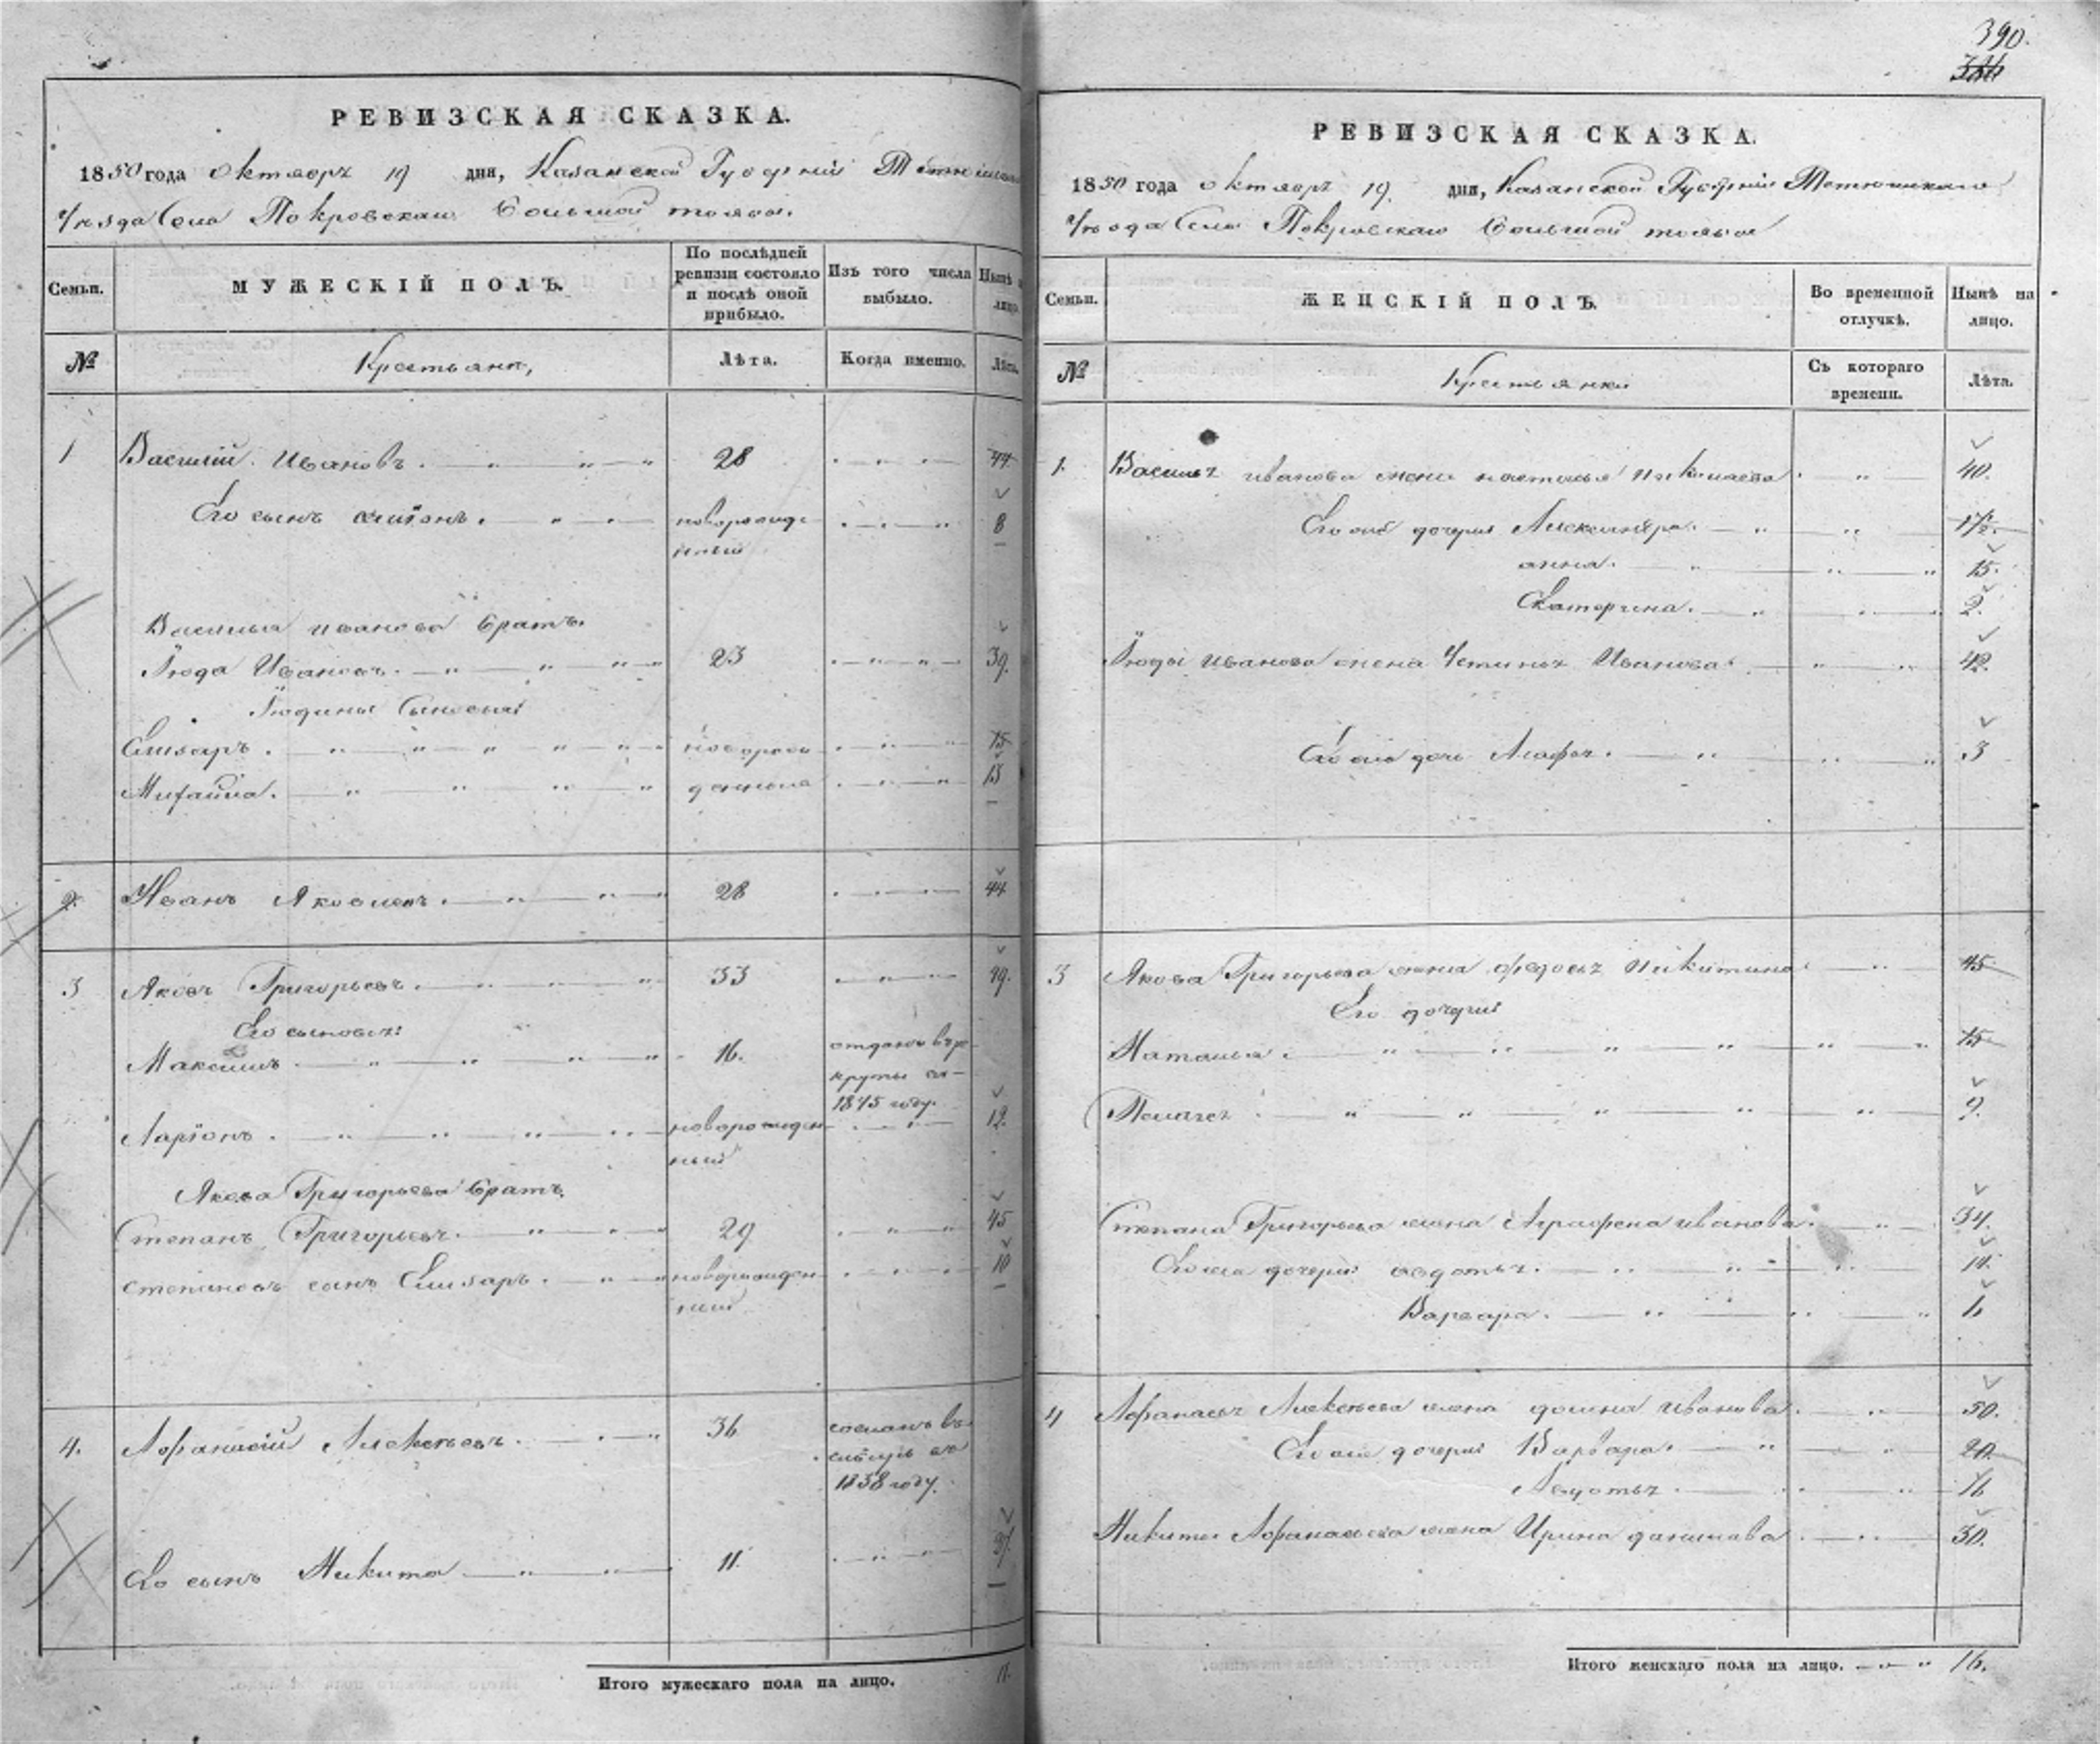 390.
РЕВИЗСКАЯ СКАЗКА.
1850 года октября 19 дня, Казанской Губернии
уѣзда Села Покровскаго Большой тоябы.
Семьи.
МУЖЕСКІЙ ПОЛЪ.
По послѣдней ревизіи состояло и послѣ оной прибыло.
Изъ того числа выбыло.
Нынѣ
лицо.
№
Крестьяне,
Лѣта.
Когда именно.
Лѣта.
1 Василій Ивановъ. 28 44
Его сынъ новорожде 8
нный
Василья иванова братъ
Іюда Ивановъ. 23 39.
Іюдины Сыновья
Елизаръ. новорож 15
Михаила. денные 13
2. Иванъ Яковлевъ. 28 44
3 Яковъ Григорьевъ. 33 49.
Его сыновья:
Максимъ 16. отданъ въ ре
круты въ
1845 году.
Ларіонъ. новорожден 12.
ный
Якова Григорьева братъ
Степанъ Григорьевъ. 29 45
степановъ сынъ Елизаръ. новорожден 10
ный
4. Афанасій Алексѣевъ. 36 сосланъ въ
сибирь въ
1838 году.
Его сынъ Никита 11. 27
Итого мужескаго пола на лицо. 11.
РЕВИЗСКАЯ СКАЗКА.
1850 года октября 19. дня, Казанской Губерніи Тетюшскаго
уѣзда Села Покровскаго Большой тоябы
Семьи.
ЖЕНСКІЙ ПОЛЪ.
Во временной отлучкѣ.
Нынѣ на лицо.
№
Крестьянки
Съ котораго времени.
Лѣта.
1. Василья иванова жена настасья Николаева 40.
Его же дочери Александра. 17½
анна. 15.
Екатерина. 2.
Іюды Иванова жена Устинья Иванова 42.
Его же дочь Агафья. 3
3 Якова Григорьева жена федосья Никитина 45
Его дочери
Наталья. 15
Пелагея 9.
Степана Григорьева жена Аграфена иванова. 34.
Его же дочери авдотья. 11.
Варвара. 6
4 Афанасья Алексѣева жена домна иванова 50.
Его же дочери Варвара. 20.
Авдотья. 16
Никиты Афанасьева жена Ирина данилова 30.
Итого женскаго пола на лицо. 16.